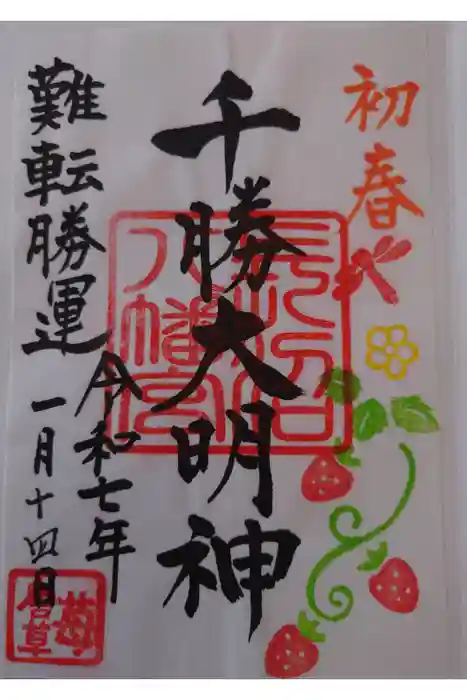 初春
千勝大明神
難転勝運
令和七年
一月十四日
長沼
八幡宮